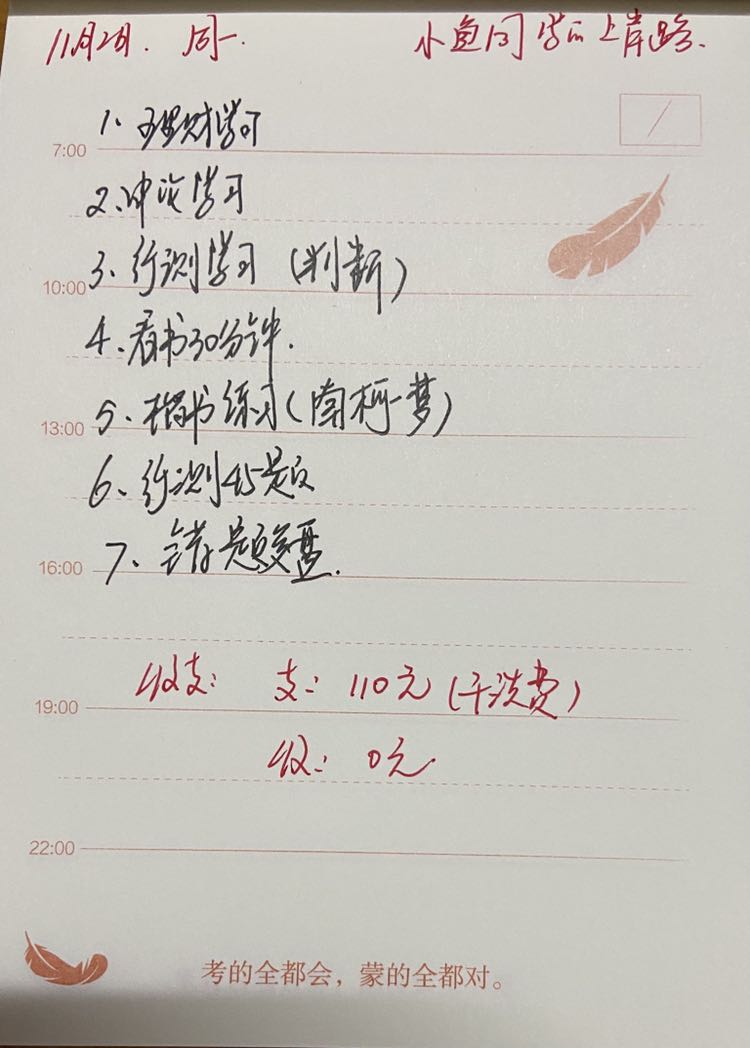 11月2日. 周一.
小鱼同学的上岸路.
1、理财学习
7:00
2、申论学习
3、行测学习（判断）
10:00
4、看书30分钟.
5、楷书练习（南柯一梦）
13:00
6、行测45题
7、错题复盘.
16:00
收支： 支：110元（干洗费）
19:00
收：0元.
22:00
考的全都会，蒙的全都对。